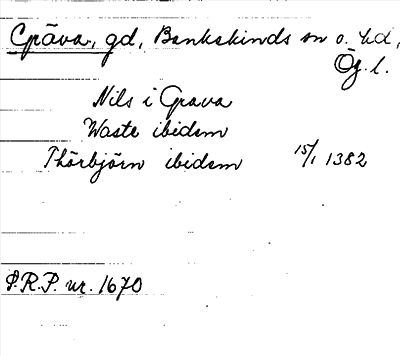 Gräva, gd, Bankekinds sn o. hd,
Ög. l.
Nils i Grava
Waste ibidem
Thörbjörn ibidem 15/1 1382
P.R.P. nr. 1670